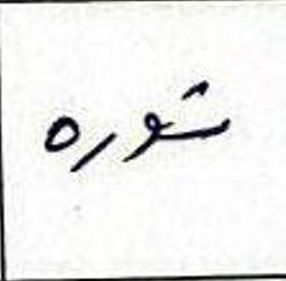 شوره